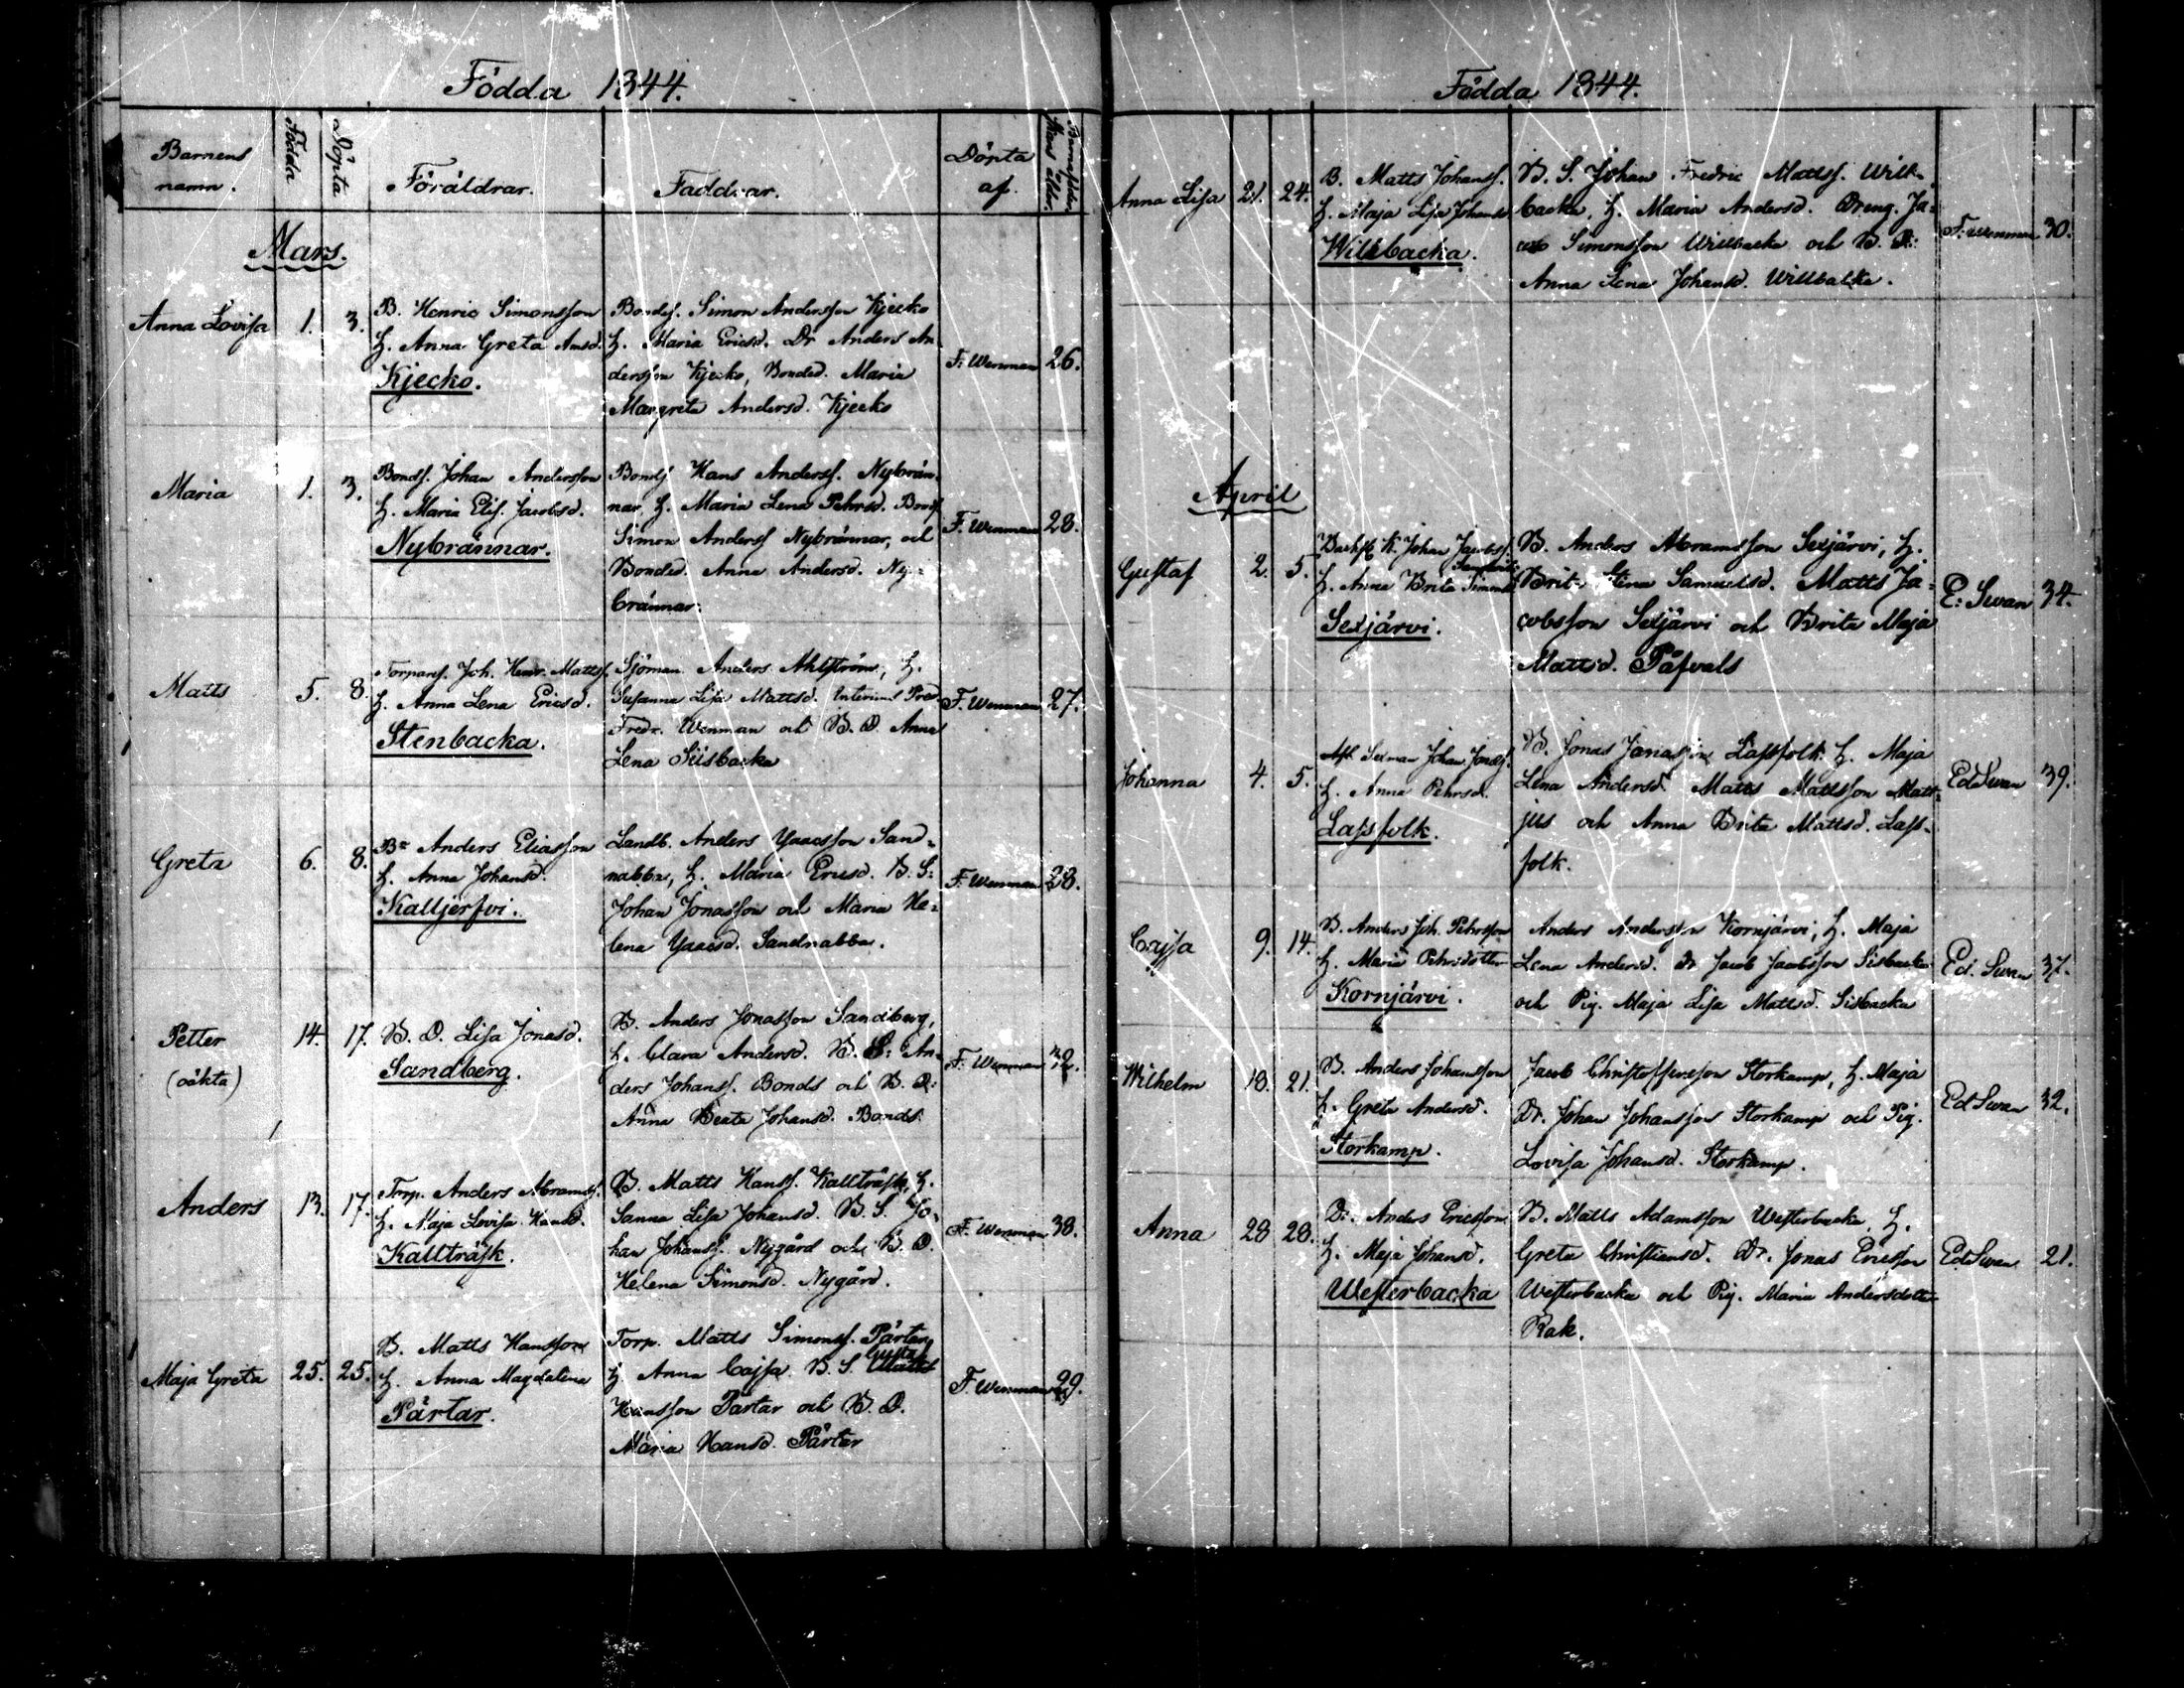 Födda 1844.
Barnens namn.
Födda
Döpta
Föräldrar.
Faddrar.
Döpta af
Barnaföder-
skans ålder.
Mars.
Anna Lovisa 1. 3.
B. Henric Simonsson
H. Anna Greta Andsd.
Kjecko.
Bondes. Simon Andersson Kjecko
H. Maria Ericsd. Dr Anders An
dersson Kjecko, Bonded. Maria
Margreta Andersd. Kjecko
F: Wenman 26.
Maria 1. 3.
Bonds. Johan Andersson
H. Maria Elis. Jacobsd.
Nybrännar.
Bonds Hans Anderss. Nybrän
nar, H. Maria Lena Pehrsd. Bonds
Simon Anderss Nybrännar, och
Bonded. Anna Andersd. Ny-
brännar.
F. Wenman 28.
Matts 5. 8.
Torpares. Joh. Henr. Mattss.
H. Anna Lena Ericsd.
Stenbacka.
Sjöman Anders Ahlström, H.
Susanna Lisa Mattsd. Interims Pred.
Fredr. Wenman och B. D. Anna
Lena Sisbacka
F. Wenman 27.
Greta 6. 8.
Bn Anders Eliasson
H. Anna Johansd.
Kalljerfvi.
Landb. Anders Ysacsson Sand-
nabba, H. Maria Ericsd. B. S:
Johan Jonasson och Maria He-
lena Ysacsd. Sandnabba.
F. Wenman 28.
Petter 14. 17.
(oäkta)
B. D. Lisa Jonasd.
Sandberg.
B. Anders Jonasson Sandberg,
H. Clara Andersd. B. S: An-
ders Johanss. Bonds och B. D:
Anna Beata Johansd. Bonds.
F. Wenman 32.
Anders 13. 17.
Torp. Anders Abramss.
H. Maja Lovisa Hansd.
Kallträsk.
B. Matts Hanss. Kallträsk, H.
Sanna Lisa Johansd. B. S. Jo-
han Johanss. Nygård och B. D.
Helena Simonsd. Nygård.
F. Wenman 38.
Maja Greta 25. 25.
B. Matts Hansson
H. Anna Magdalena
Pärtar.
Torp. Matts Simonss. Pärtar
Gustaf
H. Anna Cajsa. B. S. Matts
Hansson Pärtar och B. D.
Maria Hansd. Pärtar
F. Wenman 29.
Födda 1844.
Anna Lisa 21. 24.
B. Matts Johanss.
H. Maja Lisa Johansd.
Willbacka.
B. S. Johan Fredric Mattss. Will-
backa, H. Maria Andersd. Dreng. Ja-
cob Simonsson Willbacka och B. D:
Anna Lena Johansd. Willbacka.
F: Wenman 30.
April
Gustaf 2. 5.
Johan Jacobss.
H. Anna Brita Simonsd.
Sexjärvi.
B. Anders Abramsson Sexjärvi, H.
Brita Stina Samuelsd. Matts Ja-
cobsson Sexjärvi och Brita Maja
Mattsd. Påfvals
E: Svan 34.
Johanna 4. 5.
Afsk. Sexman Johan Jonass.
H. Anna Pehrsd.
Lassfolk.
B. Jonas Jonasson Lassfolk. H. Maja
Lena Andersd. Matts Mattsson Matt-
jus och Anna Brita Mattsd. Lass-
folk.
Ed Svan 39.
Cajsa 9. 14.
B. Anders Joh. Pehrsson
H. Maria Pehrsdotter
Kornjärvi.
Anders Andersson Kornjärvi, H. Maja
Lena Andersd. Dr Jacob Jacobsson Sisbacka
och Pig. Maja Lisa Mattsd. Sisbacka
Ed. Svan 37.
Wilhelm 18. 21.
B. Anders Johansson
H. Greta Andersd.
Storkamp.
Jacob Christoffersson Storkamp, H. Maja
Dr. Johan Johansson Storkamp och Pig.
Lovisa Johansd. Storkamp.
Ed Svan 32.
Anna 28 28.
Dr. Anders Ericsson
H. Maja Johansd.
Westerbacka
B. Matts Adamsson Westerbacka, H.
Greta Christiansd. Dr. Jonas Ericsson
Westerbacka och Pig. Maria Andersdotter
Rak.
Ed Svan 21.